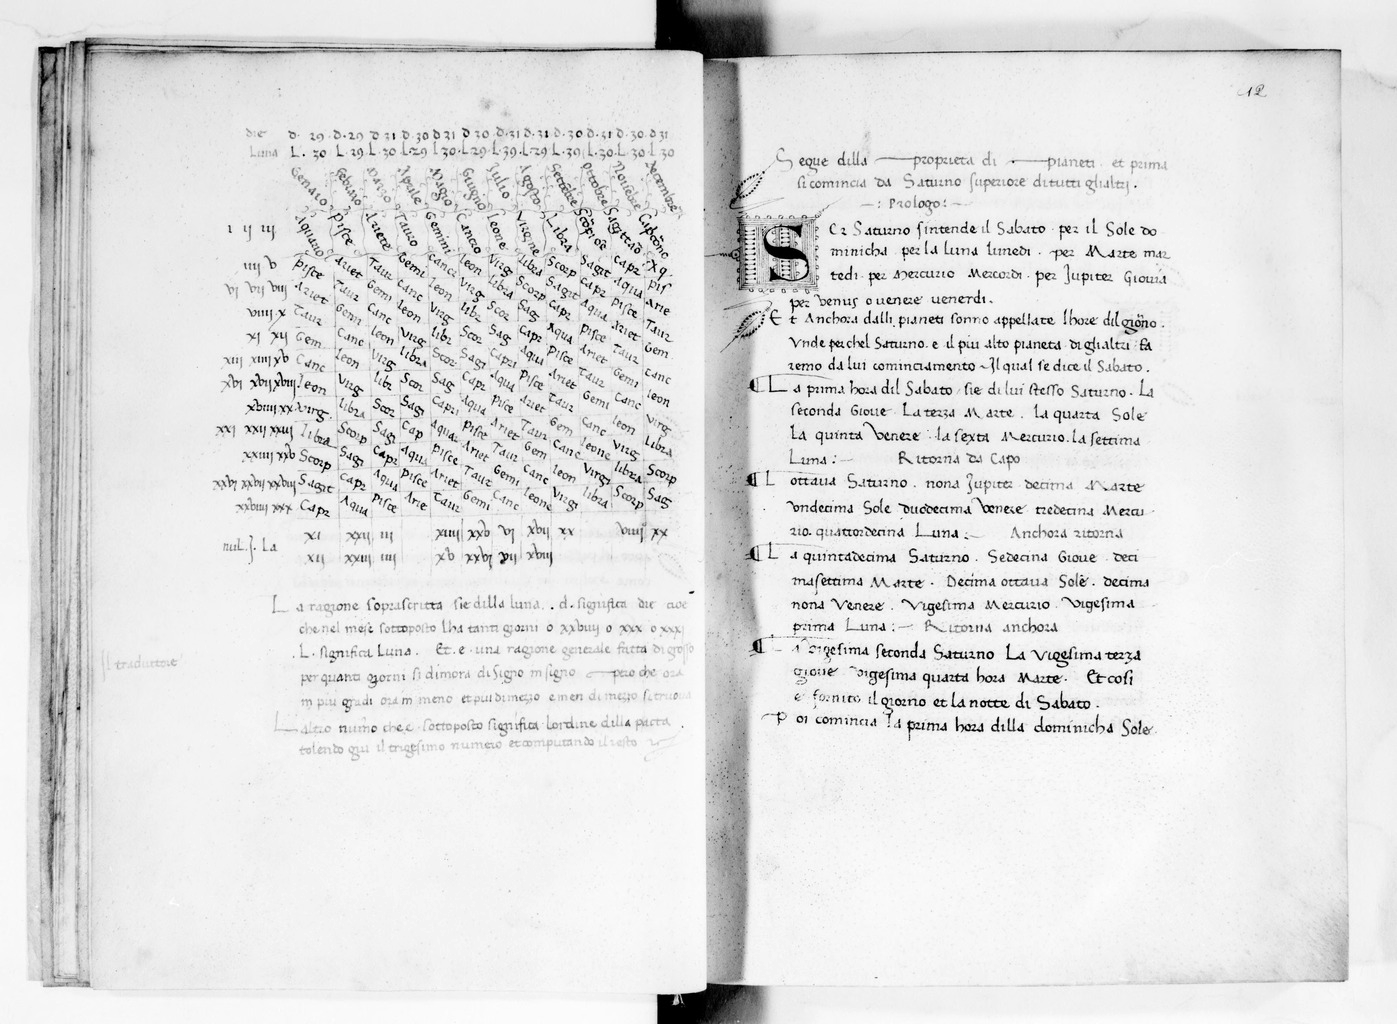 die d. 29 d. 29 d 31 d. 30 d 31 d 30 d. 31 d. 31 d. 30 d. 31 d. 30 d 31
Luna L. 30 L. 29 L. 30 L. 29 L. 30 L. 29 L. 39 L. 29 L. 39 L. 30 L. 30 L. 30
Genaio Febraio Marzo Aprile Magio Giugno Julio Agosto Settēbre Ottobre Novēbre Decembre
i ij iij Aquario Pisce Ariete Tauro Gemini Cancro Leone Virgine Libra Scorpioe Sagittario Capcōno
iiij v Pisce Ariet Taur Gemi Canc Leon Virg Libra Scorp Sagit Capr Aqua
vi vij viij Ariet Taur Gemi Canc Leon Virg Libra Scorp Sagit Capr Aqua Pisce
viiij x Taur Gemi Canc Leon Virg Libr Scor Sag Capr Aqua Pisce Ariet
xi xij Gem Canc Leon Virg Libr Scor Sag Capr Aqua Pisce Ariet Taur
xiij xiiij xv Canc Leon Virg Libra Scor Sagi Capri Aqua Pisce Ariet Taur Gem
xvi xvij xviij Leon Virg Libr Scor Sag Capr Aqua Pisce Ariet Taur Gemi Canc
xviiij xx Virg Libra Scor Sagi Capri Aqua Pisce Ariet Taur Gemi Canc Leon
xxi xxij xxiij Libra Scorp Sagi Cap Aqua Pisce Ariet Taur Gem Canc Leon Virg
xxiiij xxv Scorp Sagi Capr Aqua Pisce Ariet Taur Gem Canc Leone Virg Libra
xxvi xxvij xxviij Sagit Capr Aqua Pisce Ariet Taur Gemi Canc Leon Virgi Libra Scorp
xxviiij xxx Capr Aqua Pisce Arie Taur Gemi Canc Leone Virgi Libra Scorp Sag
xi xxij iij xiiij xxv vi xvij xx viiij xx
nul. la
xij xxiij iiij xv xxvi vij xviij
L a ragione soprascritta sie dilla luna. . d. significa die cioe
che nel mese sottoposto lha tanti giorni o xxviiij o xxx o xxxi
. L. significa Luna . Et . e . una ragione generale fatta di grosso
per quanti giorni si dimora di signo in signo pero che ora
in piu gradi ora in meno et piu di mezzo e men di mezzo si truova
L altro numō che e sottoposto significa lordine dilla pacta .
tolendo qui il trigesimo numero et computando il resto
Il traduttore
12
S egue dilla proprieta di pianeti . et prima
si comincia da Saturno superiore di tutti glialtri .
: Prologo :
S Er Saturno sintende il Sabato . per il Sole do
minicha . per la luna lunedi . per Marte mar
tedi . per Mercurio Mercordi . per Jupiter Giovia
per Venus o venere venerdi .
E t Anchora dalli pianeti sonno appellate lhore dil giōno .
Unde perchel Saturno . e il piu alto pianeta di glialtri fa
remo da lui cominciamento Il qual se dice il Sabato .
L a prima hora dil Sabato sie di lui stesso Saturno . La
seconda Giove . La terza Marte . la quarta Sole
La quinta Venere la sexta Mercurio . la settima
Luna : Ritorna da Capo
L ottava Saturno . nona Jupiter decima Marte
Undecima Sole duodecima Venere tredecima Mercu
rio . quattordecina Luna : Anchora ritorna
L a quintadecima Saturno . Sedecina Giove . deci
masettima Marte . Decima ottava Sole . decima
nona Venere . Vigesima Mercurio . Vigesima
prima Luna : Ritorna anchora
L a Vigesima seconda Saturno La Vigesima terza
giove Vigesima quarta hora Marte . Et cosi
e fornito il giorno et la notte di Sabato .
P oi comincia la prima hora dilla dominicha Sole